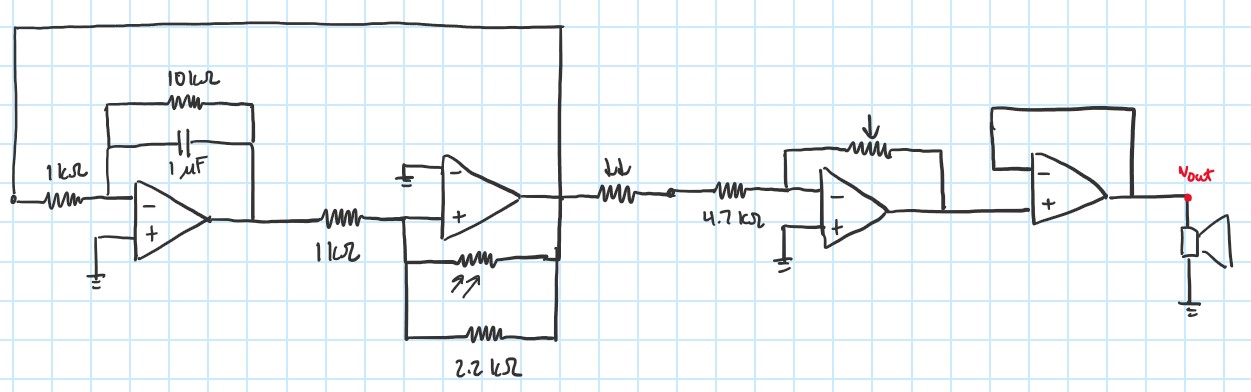 10kΩ
1 μF
1kΩ
-
+
1kΩ
-
+
2.2 kΩ
4.7 kΩ
-
+
-
+
Vout